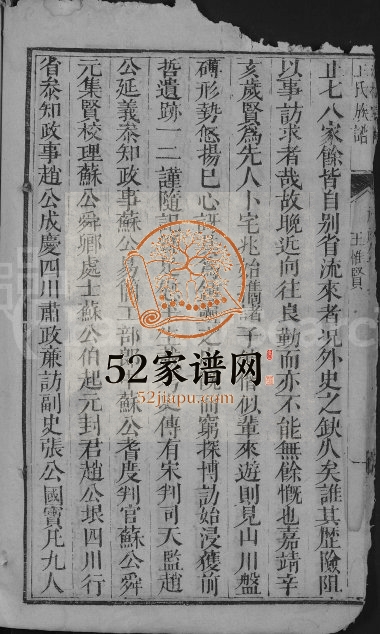 止七八家餘皆自别省流來者况外史之缺久矣誰其歷險阻
以事訪求者哉故晚近向往良勤而亦不能無餘慨也嘉靖辛
亥歲賢為先人卜宅兆始 子 似葦來遊則見山川盤
礡形勢悠揚已心訝 而窮探博訪始浸獲前
哲遺跡一二謹隨記 傳有宋判司天監趙
公延義泰知政事蘇公易 部 蘇公耆度判官蘇公舜
元集賢校理蘇公舜卿處士蘇公伯起元封君趙公垠四川行
省泰知政事趙公成慶四川肅政廉訪副史張公國寶凡九人
王氏族譜
王惟賢
52家谱网
52jiapu.com